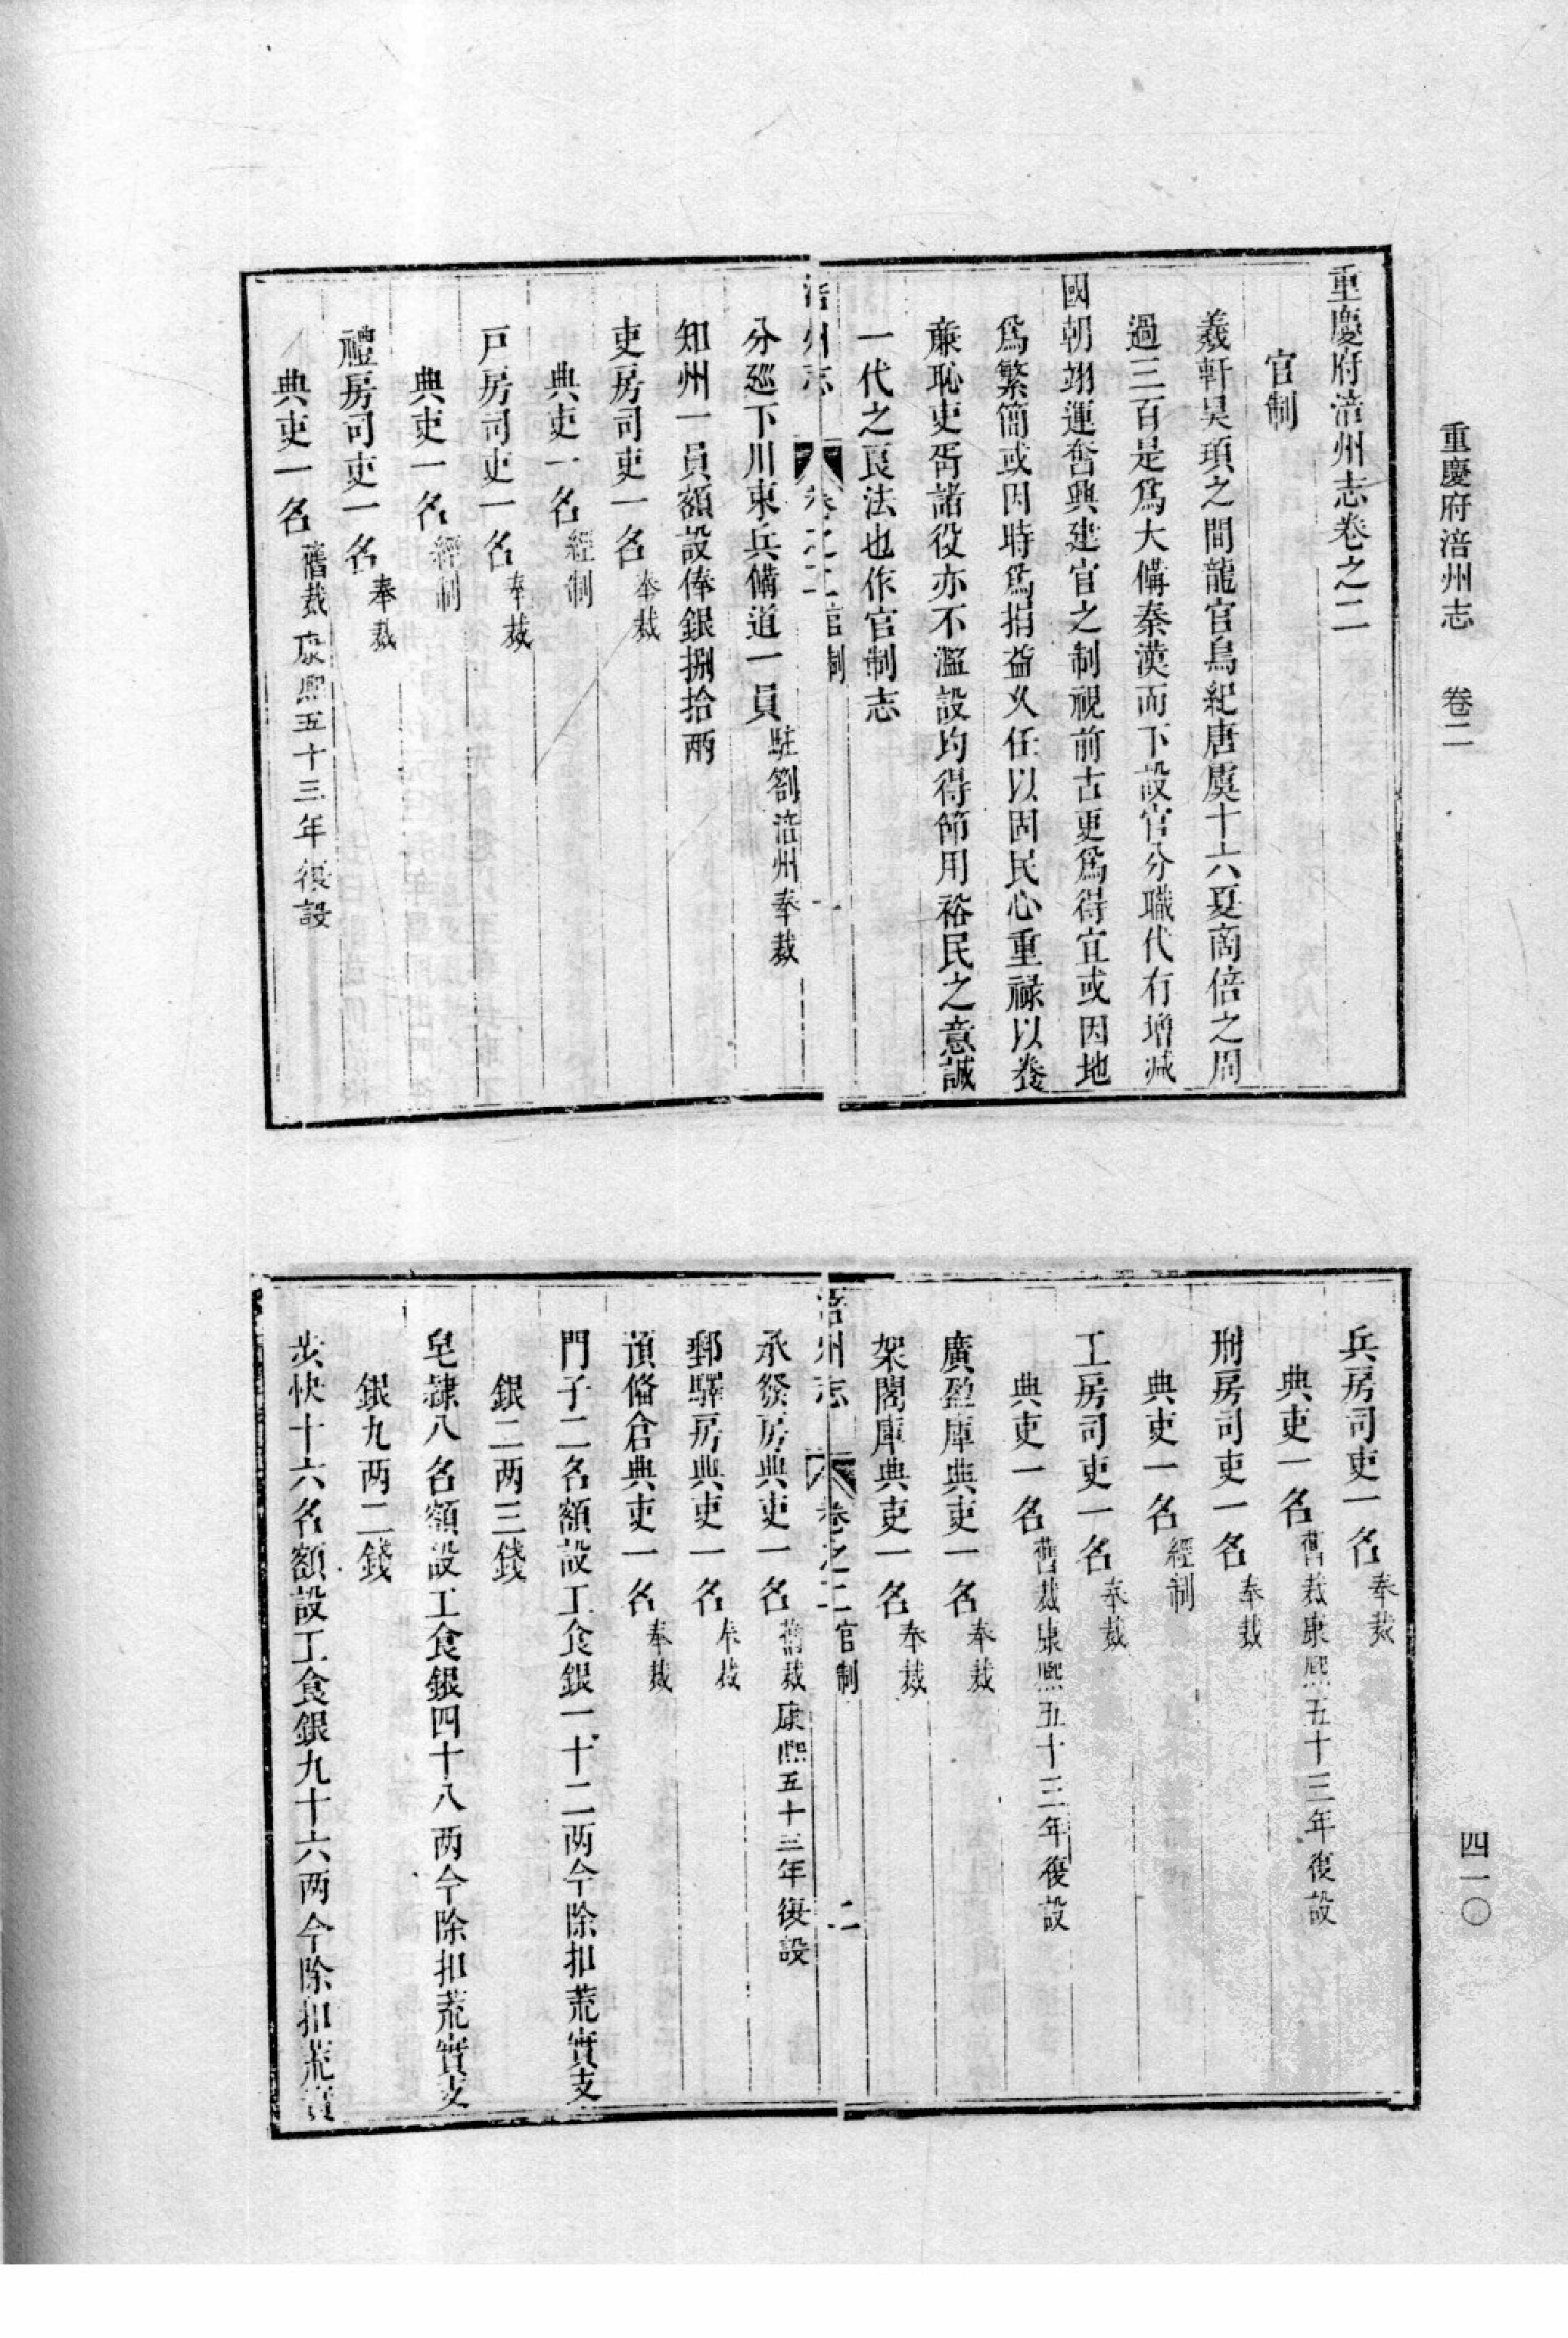 重慶府涪州志　卷二
重慶府涪州志卷之二
官制
羲軒昊頊之間龍官鳥紀唐虞十六夏商倍之周
過三百是爲大備秦漢而下設官分職代有增减
國朝翊運啻興建官之制視前古更爲得宜或因地
爲繁簡或因時爲損益久任以固民心重祿以養
亷恥吏胥諸役亦不濫設均得節用裕民之意誠
一代之良法也作官制志
涪州志　卷之二官制　一
分廵下川東兵備道一員駐劄涪州奉裁
知州一員額設俸銀捌拾兩
吏房司吏一名奉裁
典吏一名經制
戸房司吏一名奉裁
典吏一名經制
禮房司吏一名奉裁
典吏一名舊裁康熙五十三年復設
四一〇
兵房司吏一名奉裁
典吏一名舊裁康熙五十三年復設
刑房司吏一名奉裁
典吏一名經制
工房司吏一名奉裁
典吏一名舊裁康熙五十三年復設
廣盈庫典吏一名奉裁
架閣庫典吏一名奉裁
涪州志　卷之二官制　二
承發房典吏一名舊裁康熙五十三年復設
郵驛房典吏一名奉裁
預俻倉典吏一名奉裁
門子二名額設工食銀一十二两今除扣荒實支
銀二两三錢
皂隸八名額設工食銀四十八两今除扣荒實支
銀九两二錢
步快十六名額設工食銀九十六两今除扣荒實